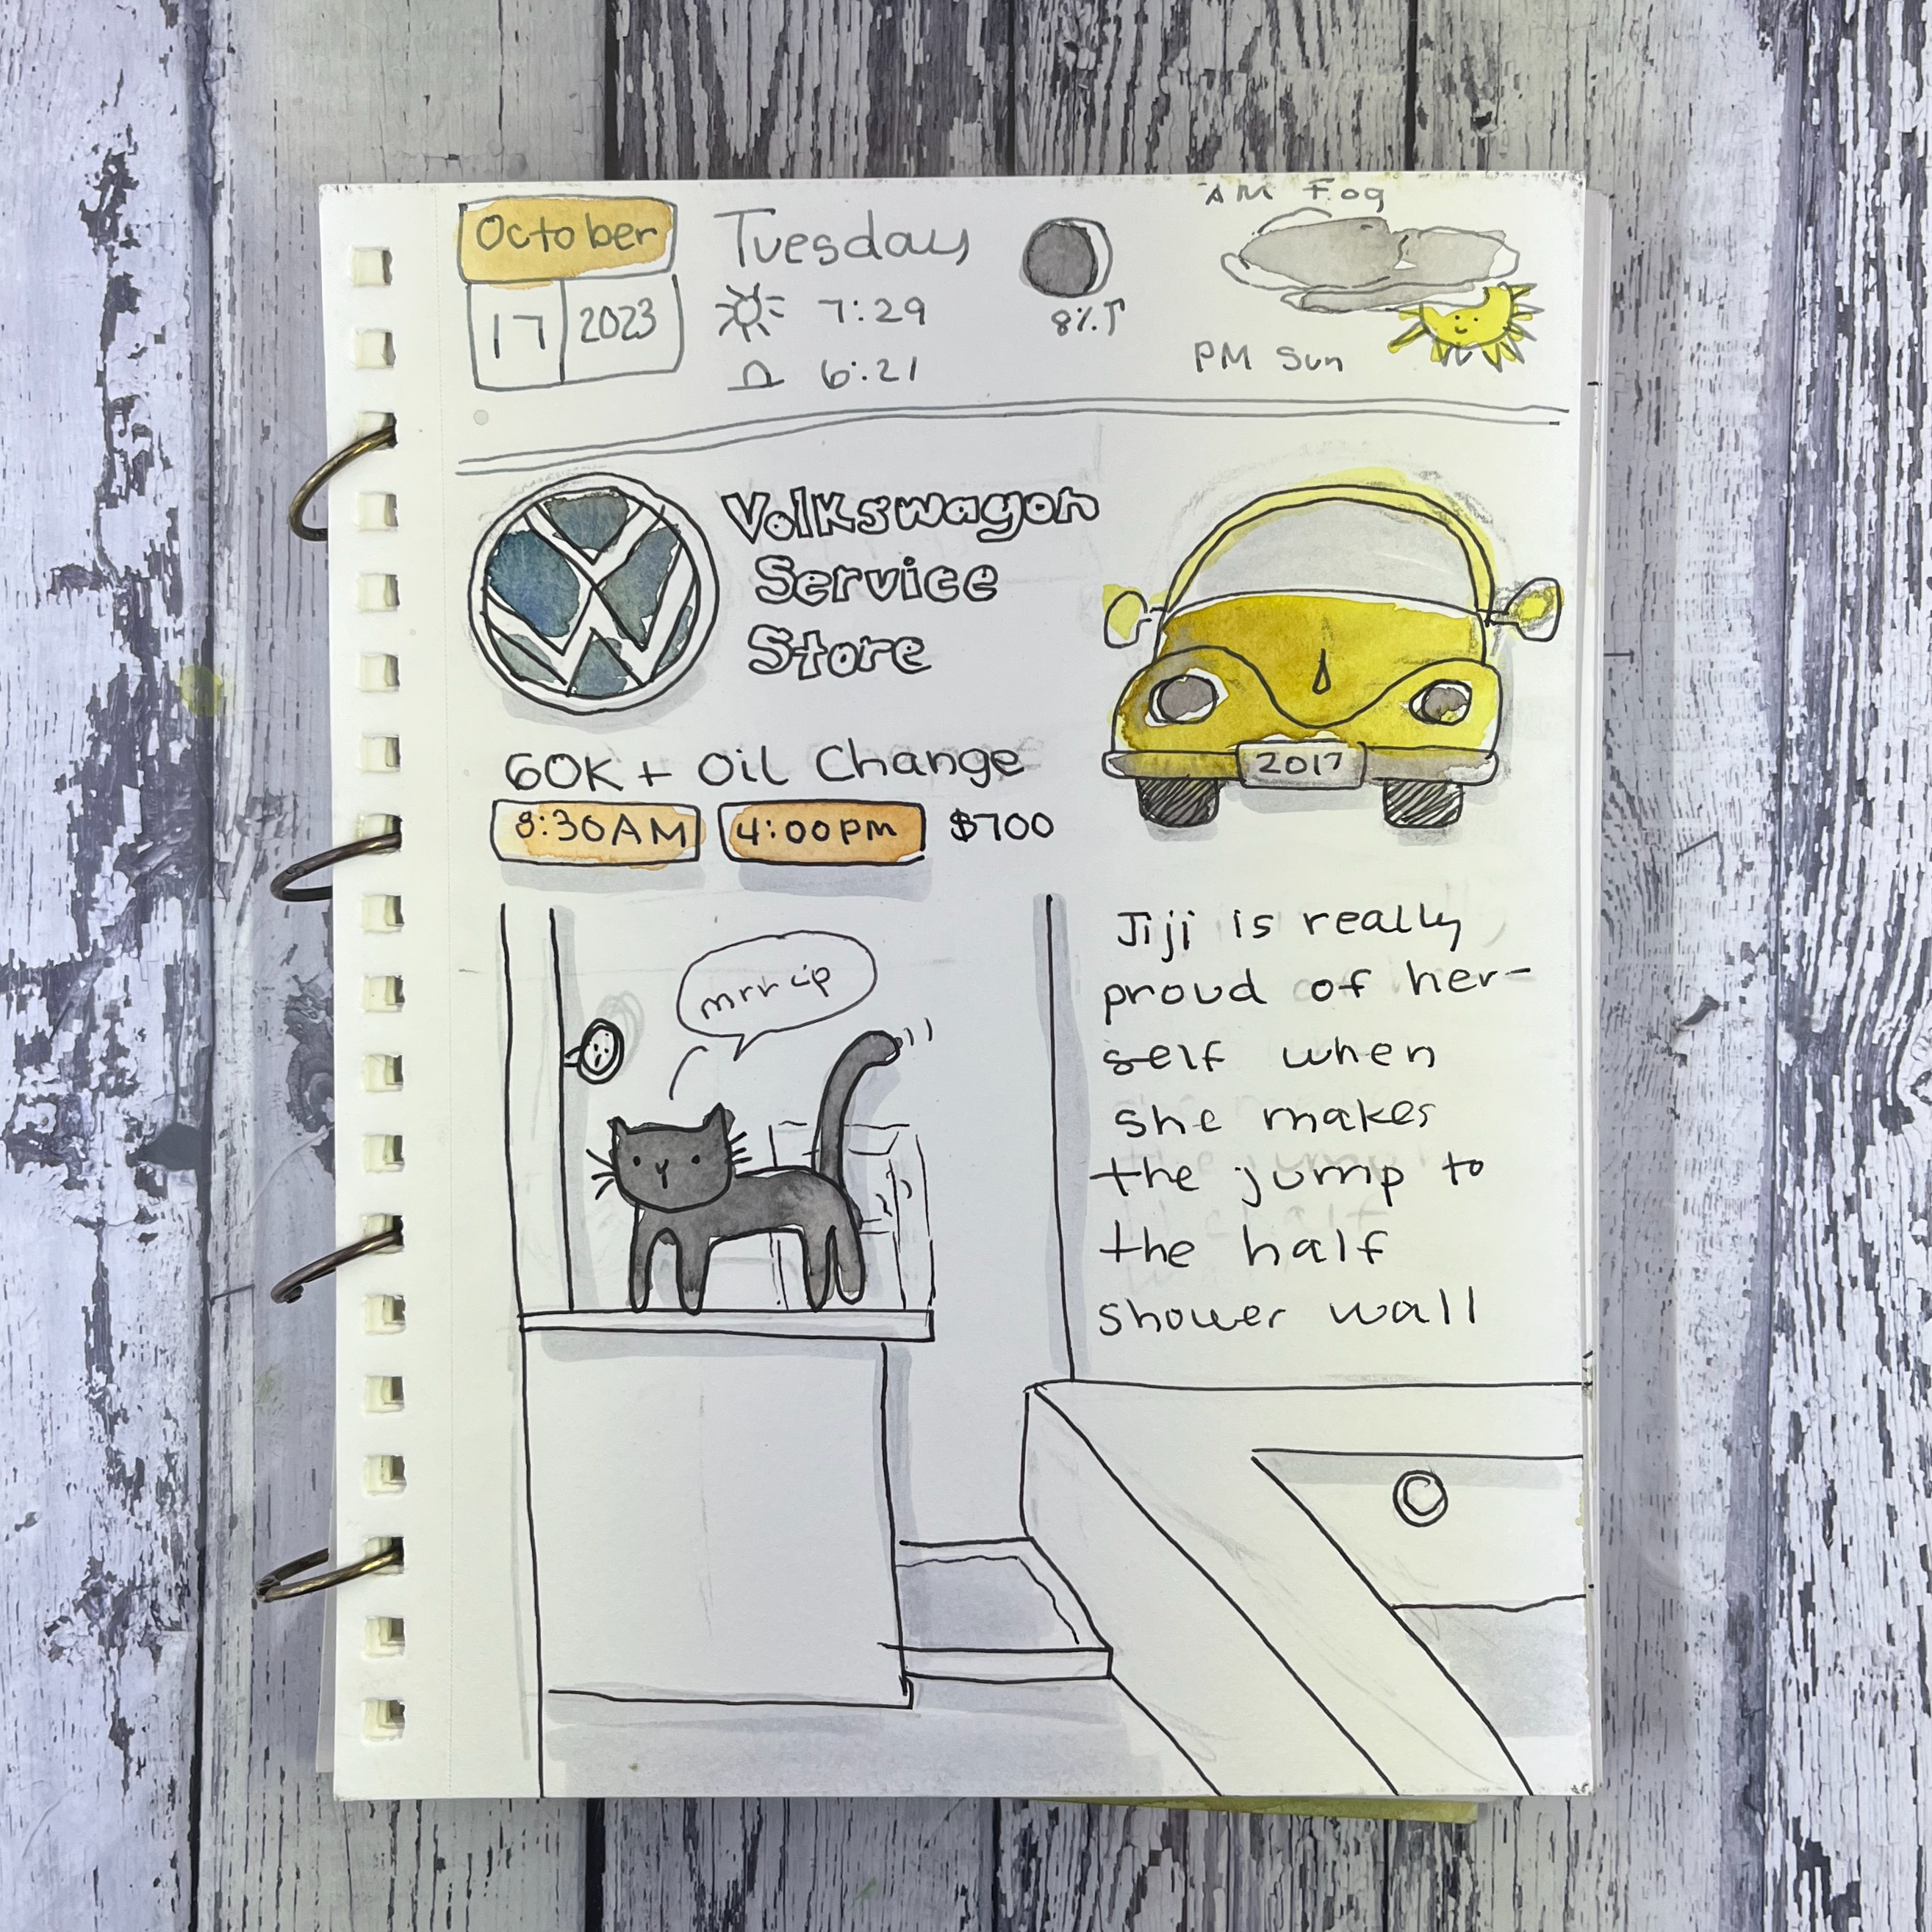 October
17 2023
Tuesday
7:29
6:21
8%↑
AM Fog
PM Sun
VW
Volkswagon
Service
Store
2017
60K + Oil Change
8:30AM 4:00pm $700
mrrcip
Jiji is really
proud of her-
self when
she makes
the jump to
the half
shower wall